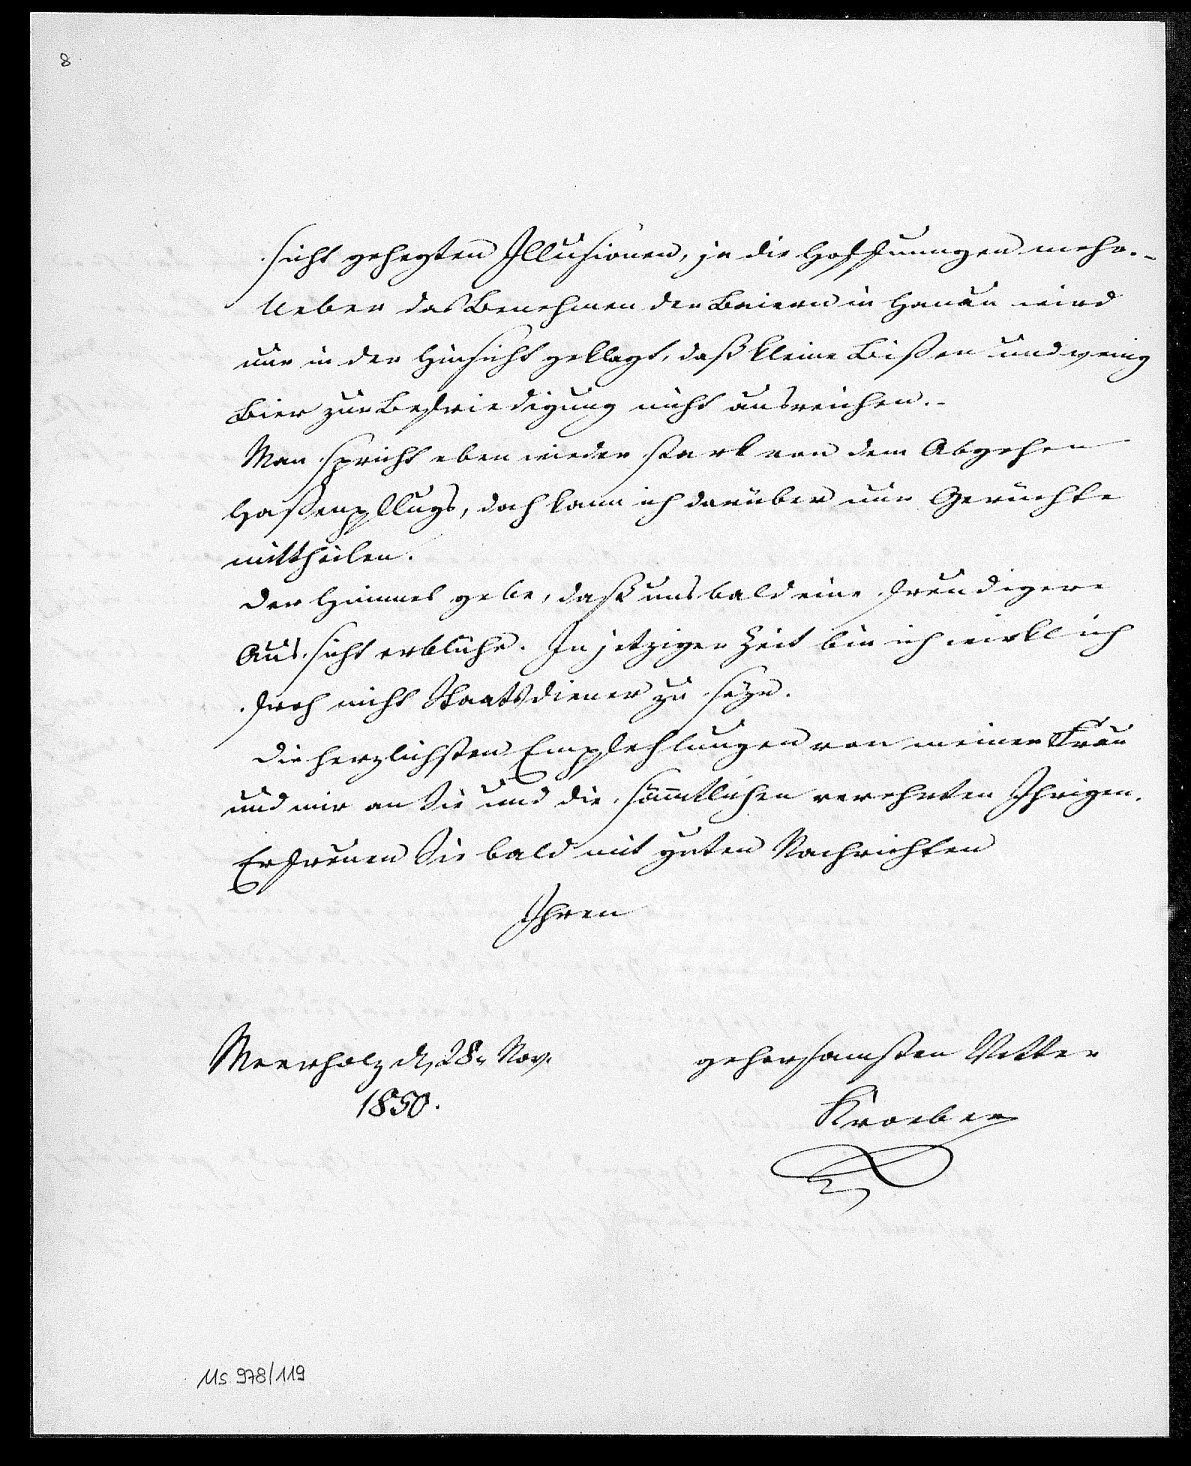 8
sicht gehegten Illusionen, ja die Hoffnungen mehr. -
Ueber das Benehmen der Baiern in Hanau wird
nur in der Hinsicht geklagt, daß kleine Bißen und wenig
Bier zur Befriedigung nicht ausreichen. -
Man spricht eben wieder stark von dem Abgehen
Haßenpflugs, doch kann ich darüber nur Gerüchte
mittheilen.
Der Himmel gebe, daß uns bald eine freudigere
Aussicht erblühe. In jetziger Zeit bin ich wirklich
froh nicht Staatsdiener zu seyn.
Die herzlichsten Empfehlungen von meiner Frau
und mir an Sie und die sämmtlichen verehrten Ihrigen.
Erfreuen Sie bald mit guten Nachrichten
Ihren
Meerholz d. 28. Nov.
1850.
gehorsamsten Vetter
Kroeber
Ms 978/119